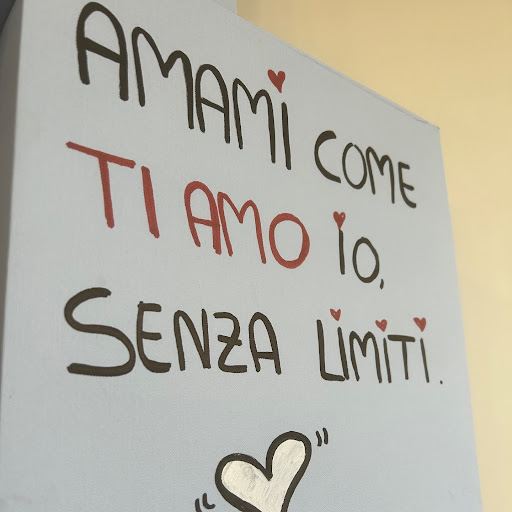 AMAMI COME
TI AMO IO,
SENZA LIMITI.